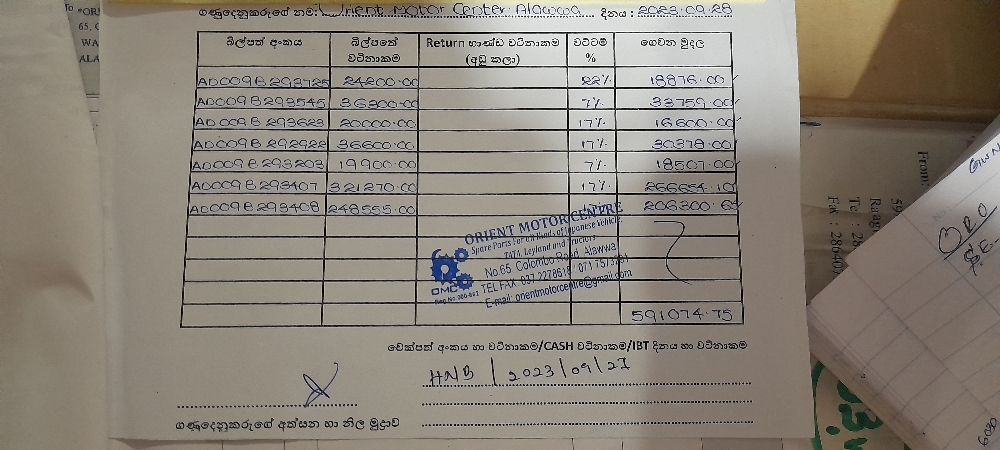 ගණුදෙනුකරුගේ නම: Orient Motor Center Alawwa දිනය: 2023.09.28
බිල්පත් අංකය බිල්පතේ වටිනාකම Return භාණ්ඩ වටිනාකම (අඩු කලා) වට්ටම් % ගෙවන මුදල
AD009B293725 24200.00 22% 18876.00
AD009B293545 36300.00 7% 33759.00
AD009B293623 20000.00 17% 16600.00
AD009B292922 36600.00 17% 30378.00
AD009B293203 19900.00 7% 18507.00
AD009B293407 321270.00 17% 266654.10
AD009B293408 248555.00 206300.65
ORIENT MOTOR CENTRE
Spare Parts For All Kinds of Japanese Vehicle,
TATA, Leyland and Tractors
No.65, Colombo Road, Alawwa
TEL FAX: 037 2278618
E-mail: orientmotorcentre@gmail.com
OMC
591074.75
චෙක්පත් අංකය හා වටිනාකම/CASH වටිනාකම/IBT දිනය හා වටිනාකම
HNB / 2023/09/27
ගණුදෙනුකරුගේ අත්සන හා නිල මුද්‍රාව
From: